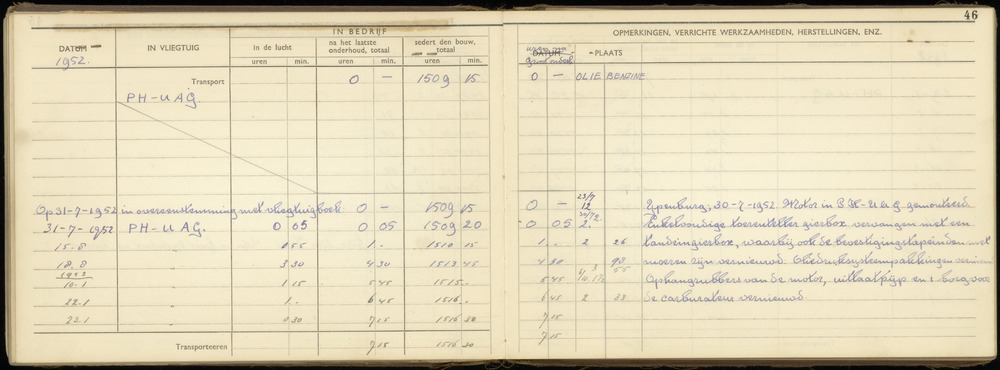 46
IN BEDRIJF
OPMERKINGEN, VERRICHTE WERKZAAMHEDEN, HERSTELLINGEN, ENZ.
DATUM IN VLIEGTUIG In de lucht na het laatste onderhoud, totaal sedert den bouw, totaal
DATUM PLAATS
1952. uren min. uren min. uren min.
Transport 0 — 1509 15 0 — OLIE BENZINE
PH-UAG.
Op 31-7-1952 in overeenstemming met vliegtuigboek. 0 — 1509 15 0 — 12 Ypenburg, 30-7-1952. Motor in P.H.-U.A.G gemonteerd.
31-7-1952 PH-UAG. 0 05 0 05 1509 20 0 05 2. Enkelvoudige toerenteller gierbox vervangen met een
15.8 " 0 55 1 .- 1510 15 1 .. 2 26 tandemgierbox, waarbij ook de bevestigingstapeinden met
18.8 " 3 30 4 30 1513 45 4 30 moeren zijn vernieuwd. Oliedruksysteempakkingen
1953
10.1 " 1 15 5 45 1515 .- 5 45 Ophangrubbers van de motor, uitlaatpijp en 1 borg voor
22.1 " 1 .- 6 45 1516 .- 6 45 2 33 de carburateur vernieuwd
22.1 " 0 30 7 15 1516 30 7 15
Transporteeren 7 15 1516 30 7 15